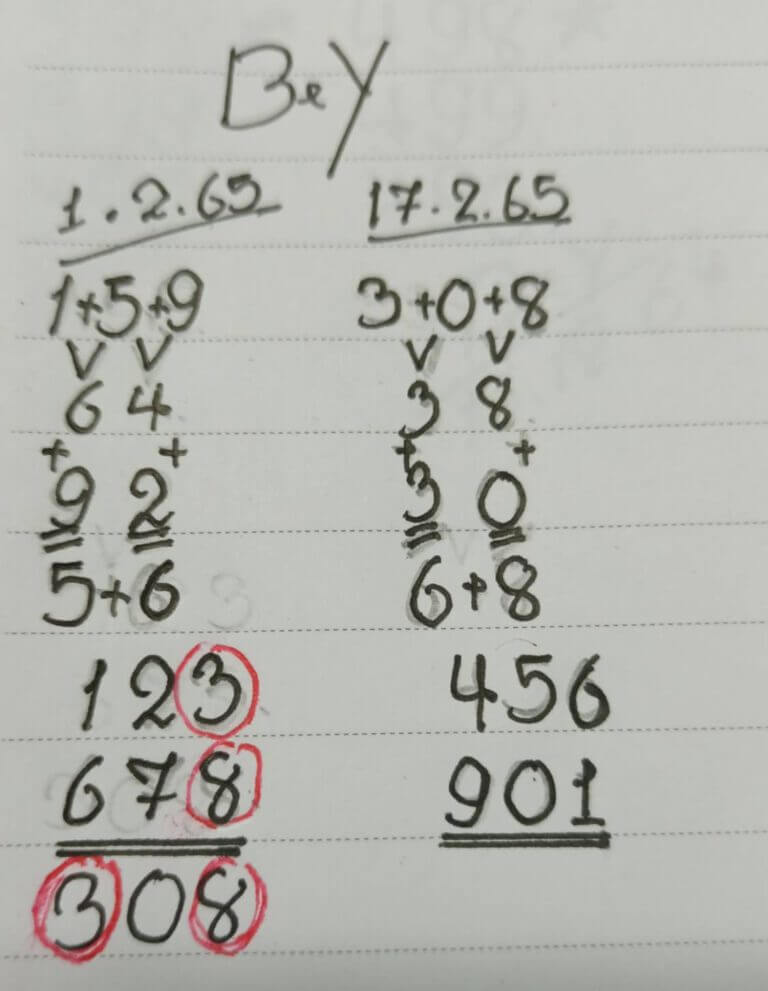 BeY
1.2.65 17.2.65
1+5+9 3+0+8
V V V V
6 4 3 8
+ + + +
9 2 3 0
5+6 6+8
123 456
678 901
308